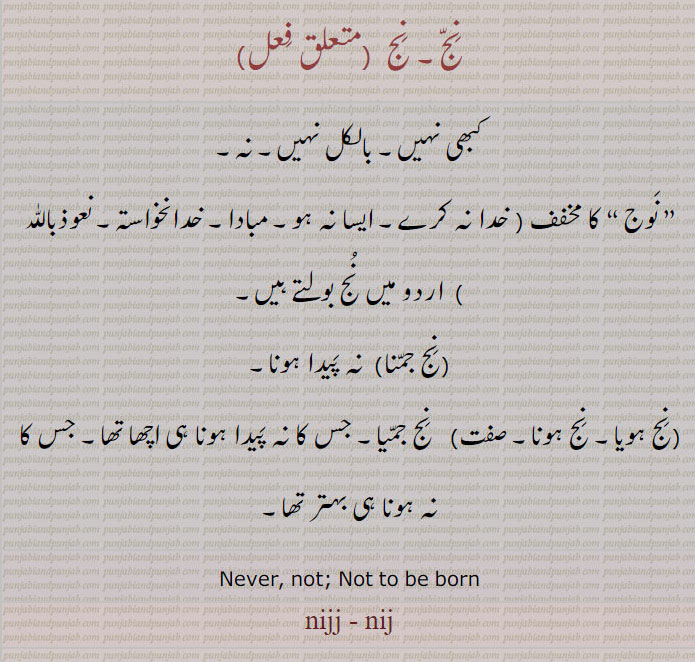 نِجّ ۔ نِج (متعلق فِعل)
کبھی نہیں ۔ بالکل نہیں ۔ نہ ۔
”نَوج “ کا مخفف ( خدا نہ کرے ۔ ایسا نہ ہو ۔ مبادا ۔ خدانخواستہ ۔ نعوذباللہ
) اردو میں نُج بولتے ہیں ۔
(نِج جمّنا) نہ پَیدا ہونا ۔
(نِج ہویا ۔ نِج ہونا ۔ صفت) نِج جمّیا ۔ جس کا نہ پَیدا ہونا ہی اچھا تھا ۔ جس کا
نہ ہونا ہی بہتر تھا ۔
Never, not; Not to be born
nijj - nij